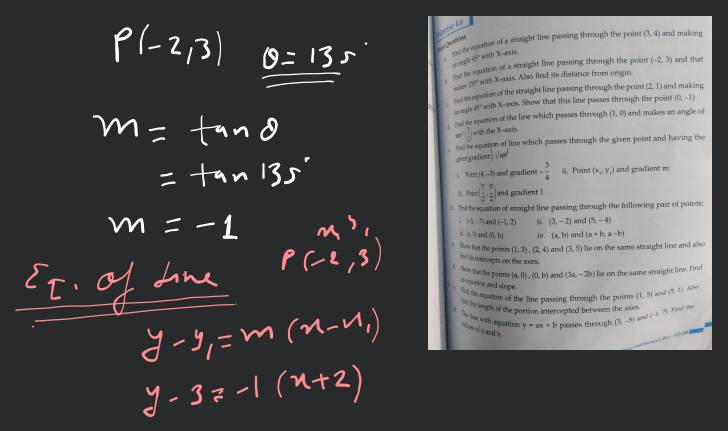 P(-2,3) θ = 135°
m = tan θ
= tan 135°
m = -1
x, y,
P(-2,3)
Eq. of Line
y - y₁ = m (x - x₁)
y - 3 = -1 (x+2)
Exercise 4.6
Find the equation of a straight line passing through the point (3, 4) and making
an angle 45° with X-axis.
Find the equation of a straight line passing through the point (-2, 3) and that
makes 135° with X-axis. Also find its distance from origin.
Find the equation of the straight line passing through the point (2, 1) and making
an angle 45° with X-axis. Show that this line passes through the point (0, -1)
Find the equation of the line which passes through (1, 0) and makes an angle of
with the X-axis.
Find the equation of line which passes through the given point and having the
given gradient
i. Point (4, -3) and gradient - 3/4 ii. Point (x₁, y₁) and gradient m
iii. Point (7/2, 9/2) and gradient 1
Find the equation of straight line passing through the following pair of points:
i. (-3, -7) and (-1, 2) ii. (3, -2) and (5, -4)
iii. (a, 0) and (0, b) iv. (a, b) and (a + b, a - b)
Show that the points (1, 3), (2, 4) and (3, 5) lie on the same straight line and also
find its intercepts on the axes.
Show that the points (a, 0), (0, b) and (3a, - 2b) lie on the same straight line. Find
its equation and slope.
Find the equation of the line passing through the points (1, 5) and Also
find the length of the portion intercepted between the axes.
The line with equation y = ax + b passes through (3, -5) and (-1, 7). Find the
values of a and b.